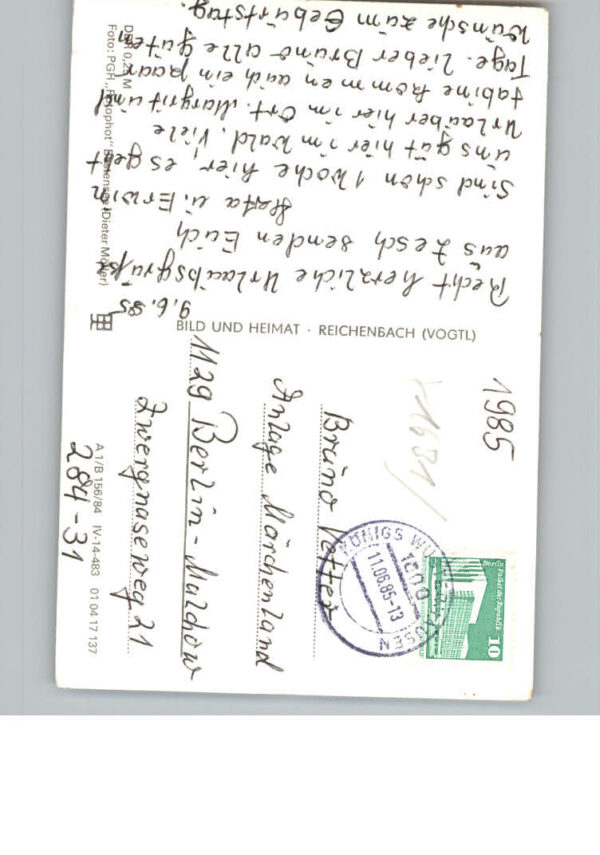 9.6.85
Recht herzliche Urlaubsgrüße
aus Zesch senden Euch
u. Erwin
Sind schon 1 Woche hier, es geht
uns gut hier im Wald. Viele
Urlauber hier im Ort. Margrit und
Sabine kommen auch ein paar
Tage. Lieber Bruno alle guten
Wünsche zum Geburtstag.
DDR 0,20 M
BILD UND HEIMAT · REICHENBACH (VOGTL)
A 1/B 156/84 IV-14-483 01 04 17 137
284-31
1985
Berlin Palast der Republik
10
KÖNIGS WUSTERHAUSEN
1600
11.06.85-13
Bruno Vetter
Anlage Märchenland
1129 Berlin-Malchow
Zwergnaseweg 21